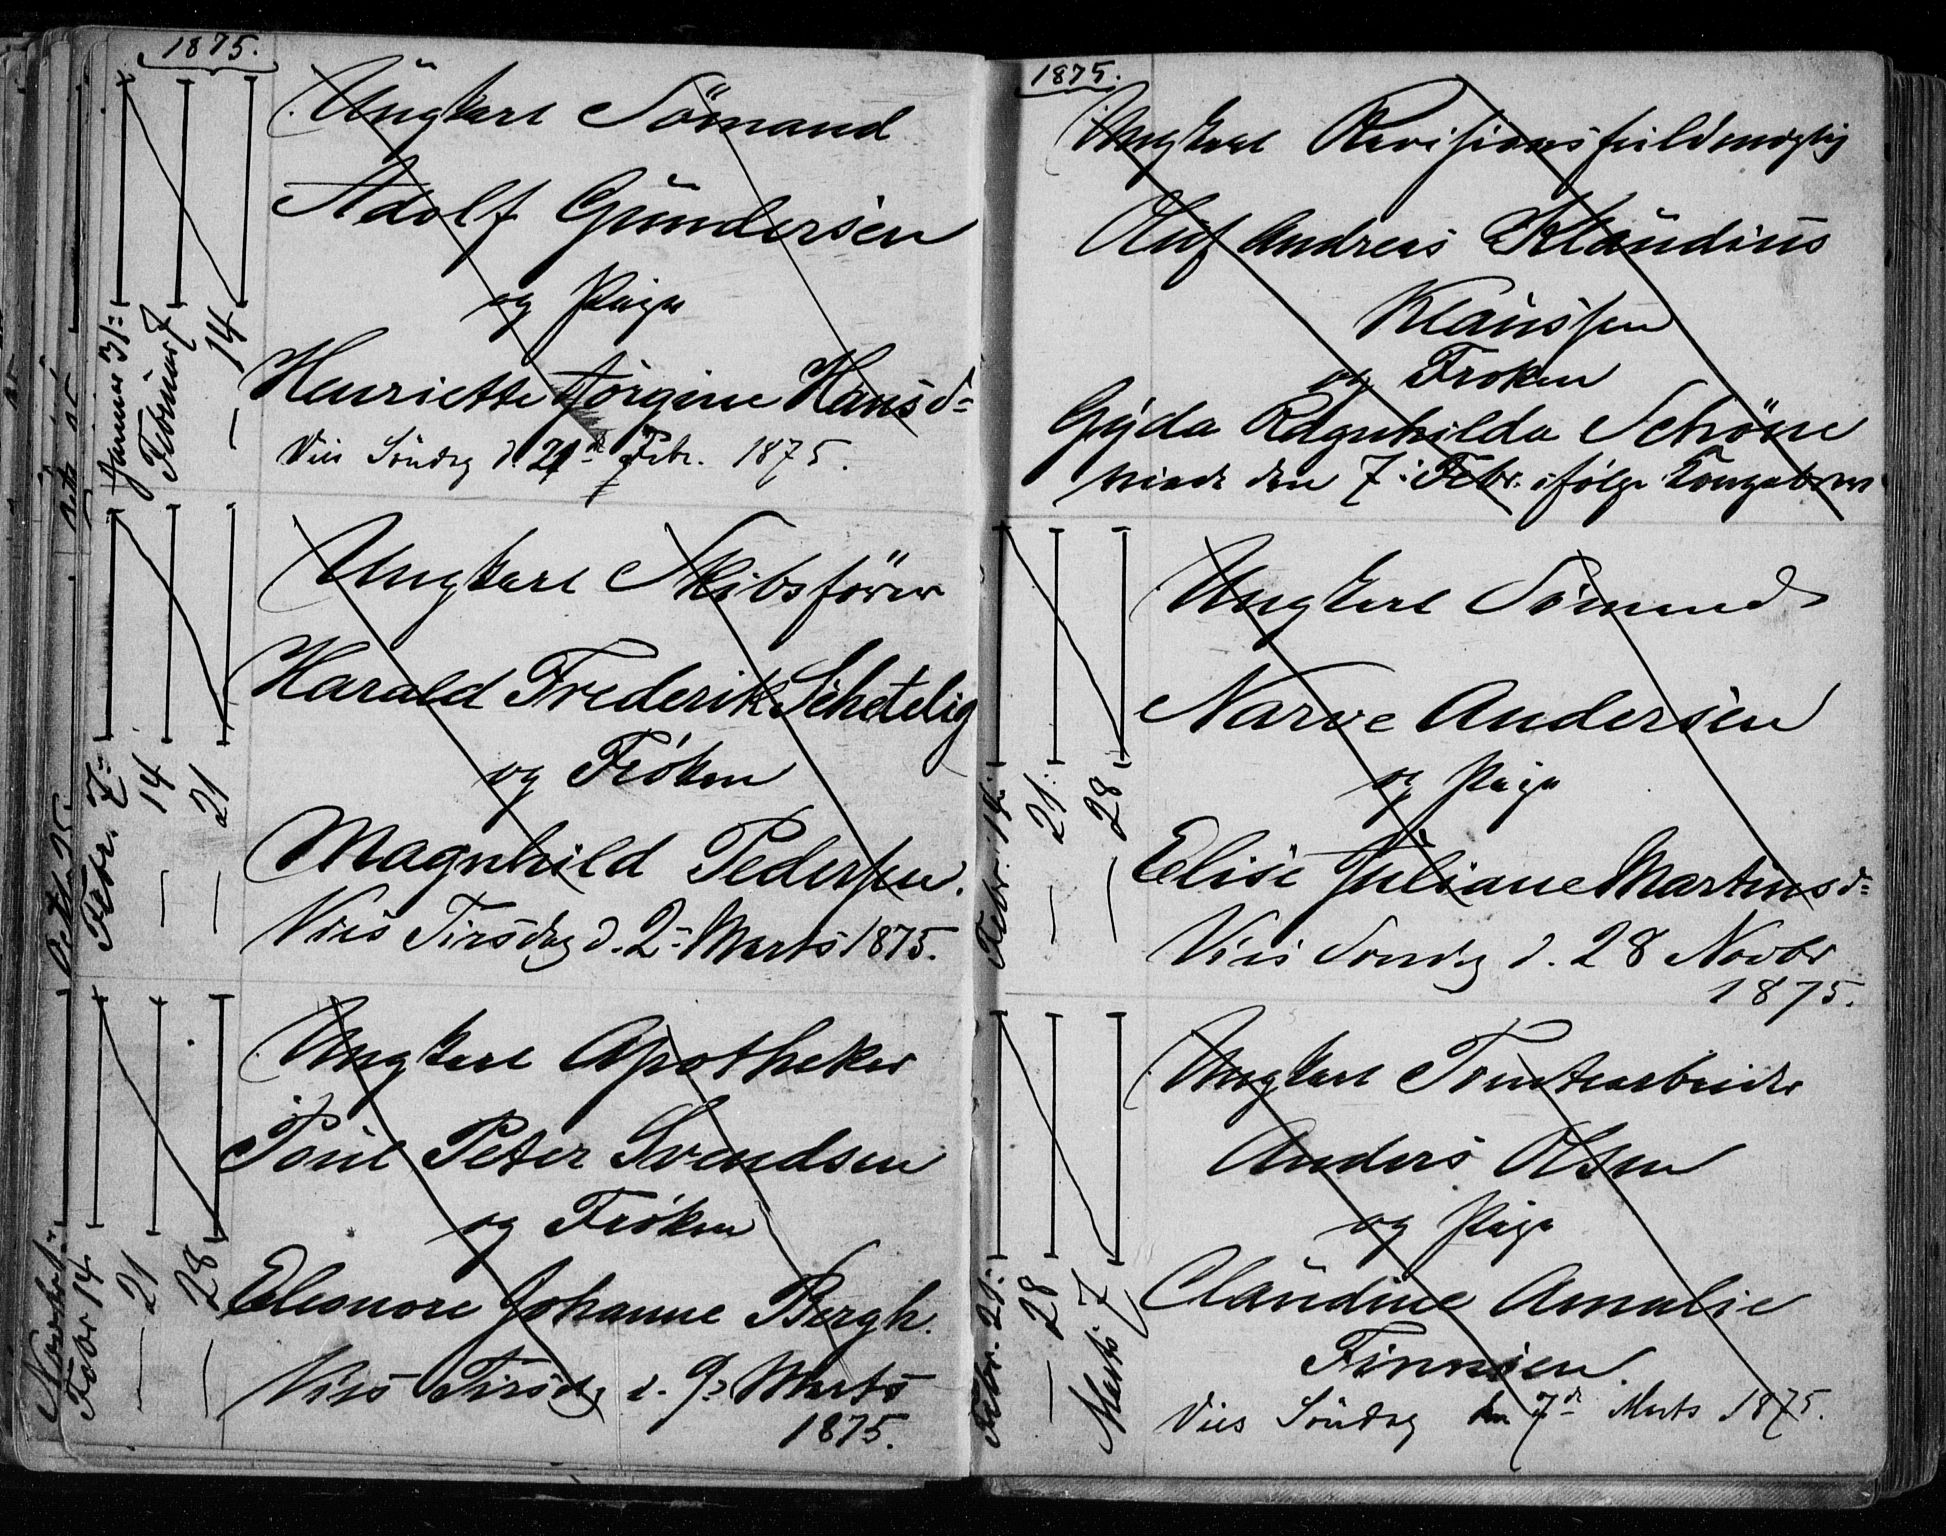 1875.
Ungkarl Sömand
Adolf Gundersen
og Pige
Henriette Jörgine Hansd=
Vies Söndag d. 21de Febr. 1875.
Januar 31:
Februar 7
— 14
Ungkarl Skibsförer
Harald Frederik Schetelig
og Fröken
Magnhild Pedersen.
Vies Tirsdag d. 2= Marts 1875.
Febr. 7=
— 14
— 21
Ungkarl Apotheker
Poul Peter Svendsen
og Fröken
Eleonore Johanne Bergh.
Vies Tirsdag d. 9= Marts
1875.
Febr 14
— 21
— 28
1875.
Ungkarl Revisionsfuldmægtig
Oluf Andreas Klaudius
Klaussen
og Frøken
Gyda Ragnhilda Schöne
viede den 7: Febr. ifølge Kongebrev
Ungkarl Sömand
Narve Andersen
og Pige
Elise Juliane Martinsd=
Vies Sondag d. 28 Novbr
1875.
Febr. 14:
— 21:
— 28
Ungkarl Tomtearbeider
Anders Olsen
og Pige
Claudine Amalie
Finnsen
Vies Söndag den 7de Marts 1875.
Febr. 21:
— 28
Marts 7